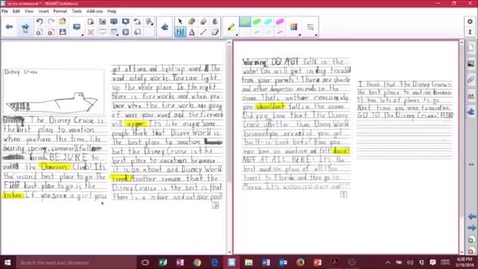 File Edit View Insert Format Tools Add-ons Help
Disney Cruise
The Disney Cruise is
the best place to vacation
when you have the time, like
during spring, summer, fall
break. BE SURE to
the Oceaneer Club! It's
the second best place to go. The
best place to go is the
if you are a girl you
get a and light-up wand. The
wand actually works. You can light
up the whole place. In the night
there is fireworks and when you
know when the fire works are going
wave your wand and the fireworks
will appear. It's like magic. Some
people think that Disney World is
the best place to vacation
but the Disney Cruise is the
best place to vacation because
it is on a boat and Disney World
Another reason that the
Disney Cruise is the best is that
there is a indoor and outdoor pool
Warning! DO NOT fall in the
water! You will get in big trouble
from your parents! There are sharks
and other dangerous animals in the
ocean. That's another reason why
you shouldn't fall in the ocean.
Did you know that The Disney
Cruise is better than Disney World
because you get
built in bunk beds? Have you
ever been on vacation and felt bored?
NOT AT ALL HERE! It's the
best vacation place of all! You
travel to Florida and then go to
Mexico. It's
I think that the Disney Cruise is
the best place to vacation because
it has lots of places to go.
Next time you want to vacation,
GO TO The Disney Cruise!
Search the web and Windows
6:00 PM